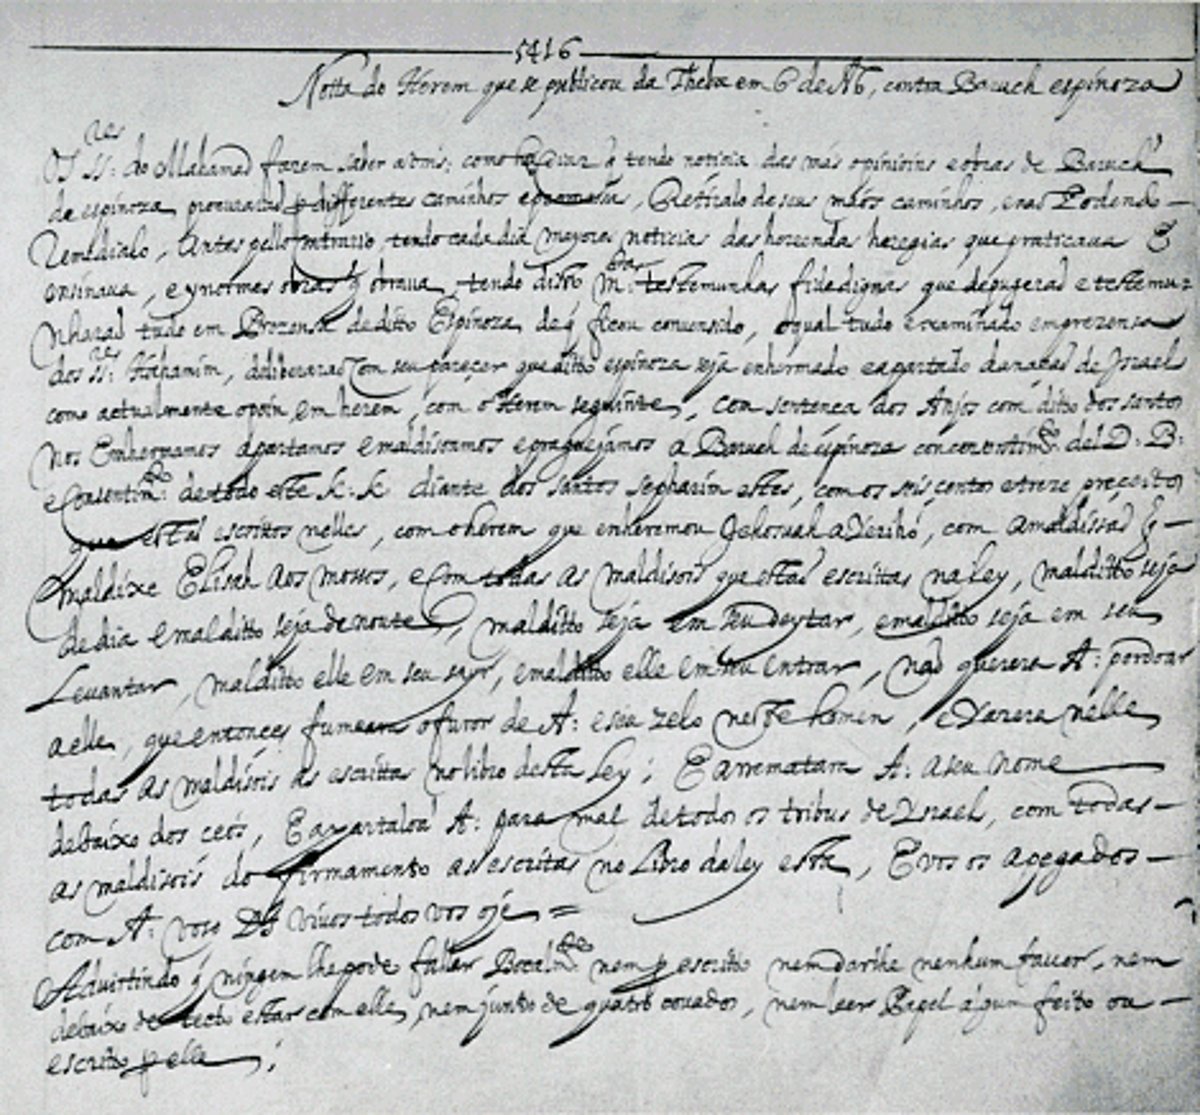 5416
Notta do Herem que se publicou da Theba em 6 de Ab, contra Baruch espinoza
Os SS:res do Mahamad fazem saber a vms: como ha dias q tendo noticia das más opinioins e obras de Baruch
de espinoza procurarão p differentes caminhos e promesas, Retiralo de seus máos caminhos, e naõ Podendo
Remedialo, Antes pello contrario tendo cada dia mayores noticias das horrendas heregias que praticava E
ensinava, e ynormes obras q obrava, tendo disto m:tas testemunhas fidedignas que depugeraõ e testemu-
nharaõ tudo em Prezensa de ditto Espinoza, de q ficou convensido, o qual tudo examinado em prezensa
dos SS:res Hahamim, deliberaraõ com seu pareçer que ditto espinoza seja enhermado e apartado da naçaõ de Israel
como actualmente o poin em herem, com o Herem seguinte, Com sentença dos Anjos com ditto dos santos
Nos Enhermamos apartamos e maldisoamos e praguejamos a Baruch de espinoza con consentim:to del D: B:
e Consentim:to de todo este K: K: diante dos santos sepharim estes, com os seis centos e treze preçeitos
que estaõ escrittos nelles, com o herem que enheremou Jehosuah a Yeriho, com a maldissaõ q
maldixe Elisah aos mossos, e com todas as maldisois que estaõ escrittas na Ley, malditto seja
de dia e malditto seja de noute, malditto seja em seu deytar, e malditto seja em seu
Levantar, malditto elle em seu sayr, e malditto elle em seu entrar, naõ quererá A: perdoar
a elle, que entonces fumeara o furor de A: e seu zelo neste homem, e Yazera nelle
todas as maldisois as escrittas no libro desta Ley; E arrematara A: a seu nome
debaixo dos ceos, E apartaloa A: para mal de todos os tribus de Ysrael, com todas
as maldisois do firmamento as escritas no Libro da ley esta, E vos os apegados
com A: voso Ds vivos todos vos oje =
Advirtindo q ningem lhe pode fallar Bocalm:te nem p escritto nem dar lhe nenhum favor, nem
debaixo de tecto estar com elle, nem junto de quatro covados, nem leer Papel algum feito ou
escritto p elle;